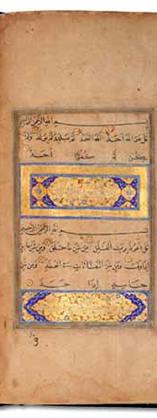 بسم الله الرحمن الرحيم
قل هو الله احد الله الصمد لم يلد ولم يولد ولم
يكن له كفوا احد
بسم الله الرحمن الرحيم
قل اعوذ برب الفلق من شر ما خلق ومن شر غاسق
اذا وقب ومن شر النفاثات في العقد ومن شر
حاسد اذا حسد